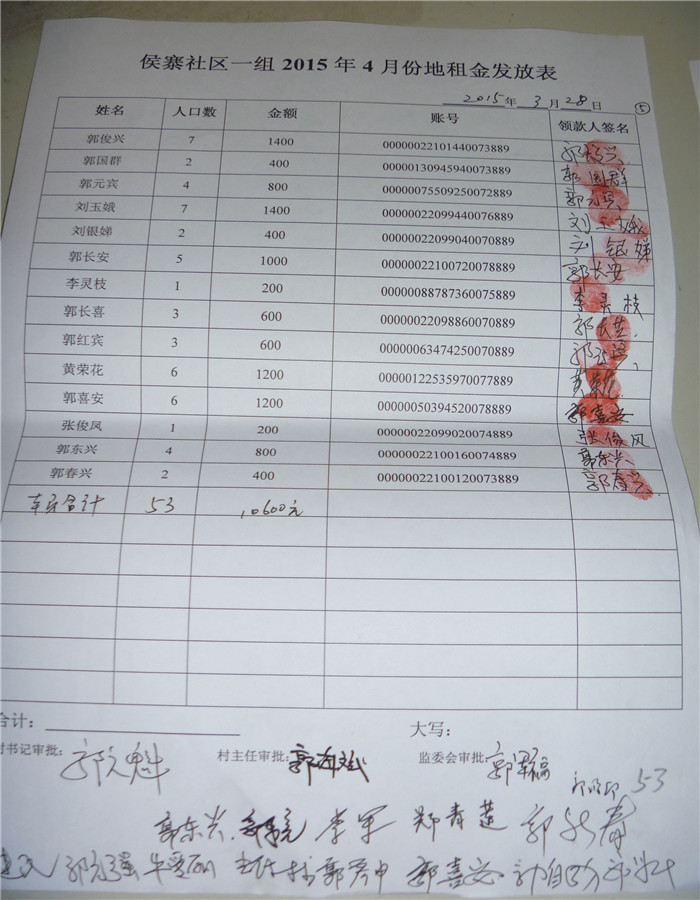 侯寨社区一组 2015 年 4 月份地租金发放表
2015年 3月 28日 ⑤
姓名 人口数 金额 账号 领款人签名
郭俊兴 7 1400 00000022101440073889
郭国群 2 400 00000130945940073889 郭国群
郭元宾 4 800 00000075509250072889
刘玉娥 7 1400 00000022099440076889 刘玉娥
刘银娣 2 400 00000022099040070889 刘银娣
郭长安 5 1000 00000022100720078889 郭长安
李灵枝 1 200 00000088787360075889 李灵枝
郭长喜 3 600 00000022098860070889
郭红宾 3 600 00000063474250070889
黄荣花 6 1200 00000122535970077889
郭喜安 6 1200 00000050394520078889 郭喜安
张俊凤 1 200 00000022099020074889 张俊风
郭东兴 4 800 00000022100160074889 郭东兴
郭春兴 2 400 00000022100120073889 郭春兴
合计 53 10600元
合计： 大写：
村书记审批： 村主任审批： 监委会审批：
53
郭东兴 李军 郑青莲
郭喜安